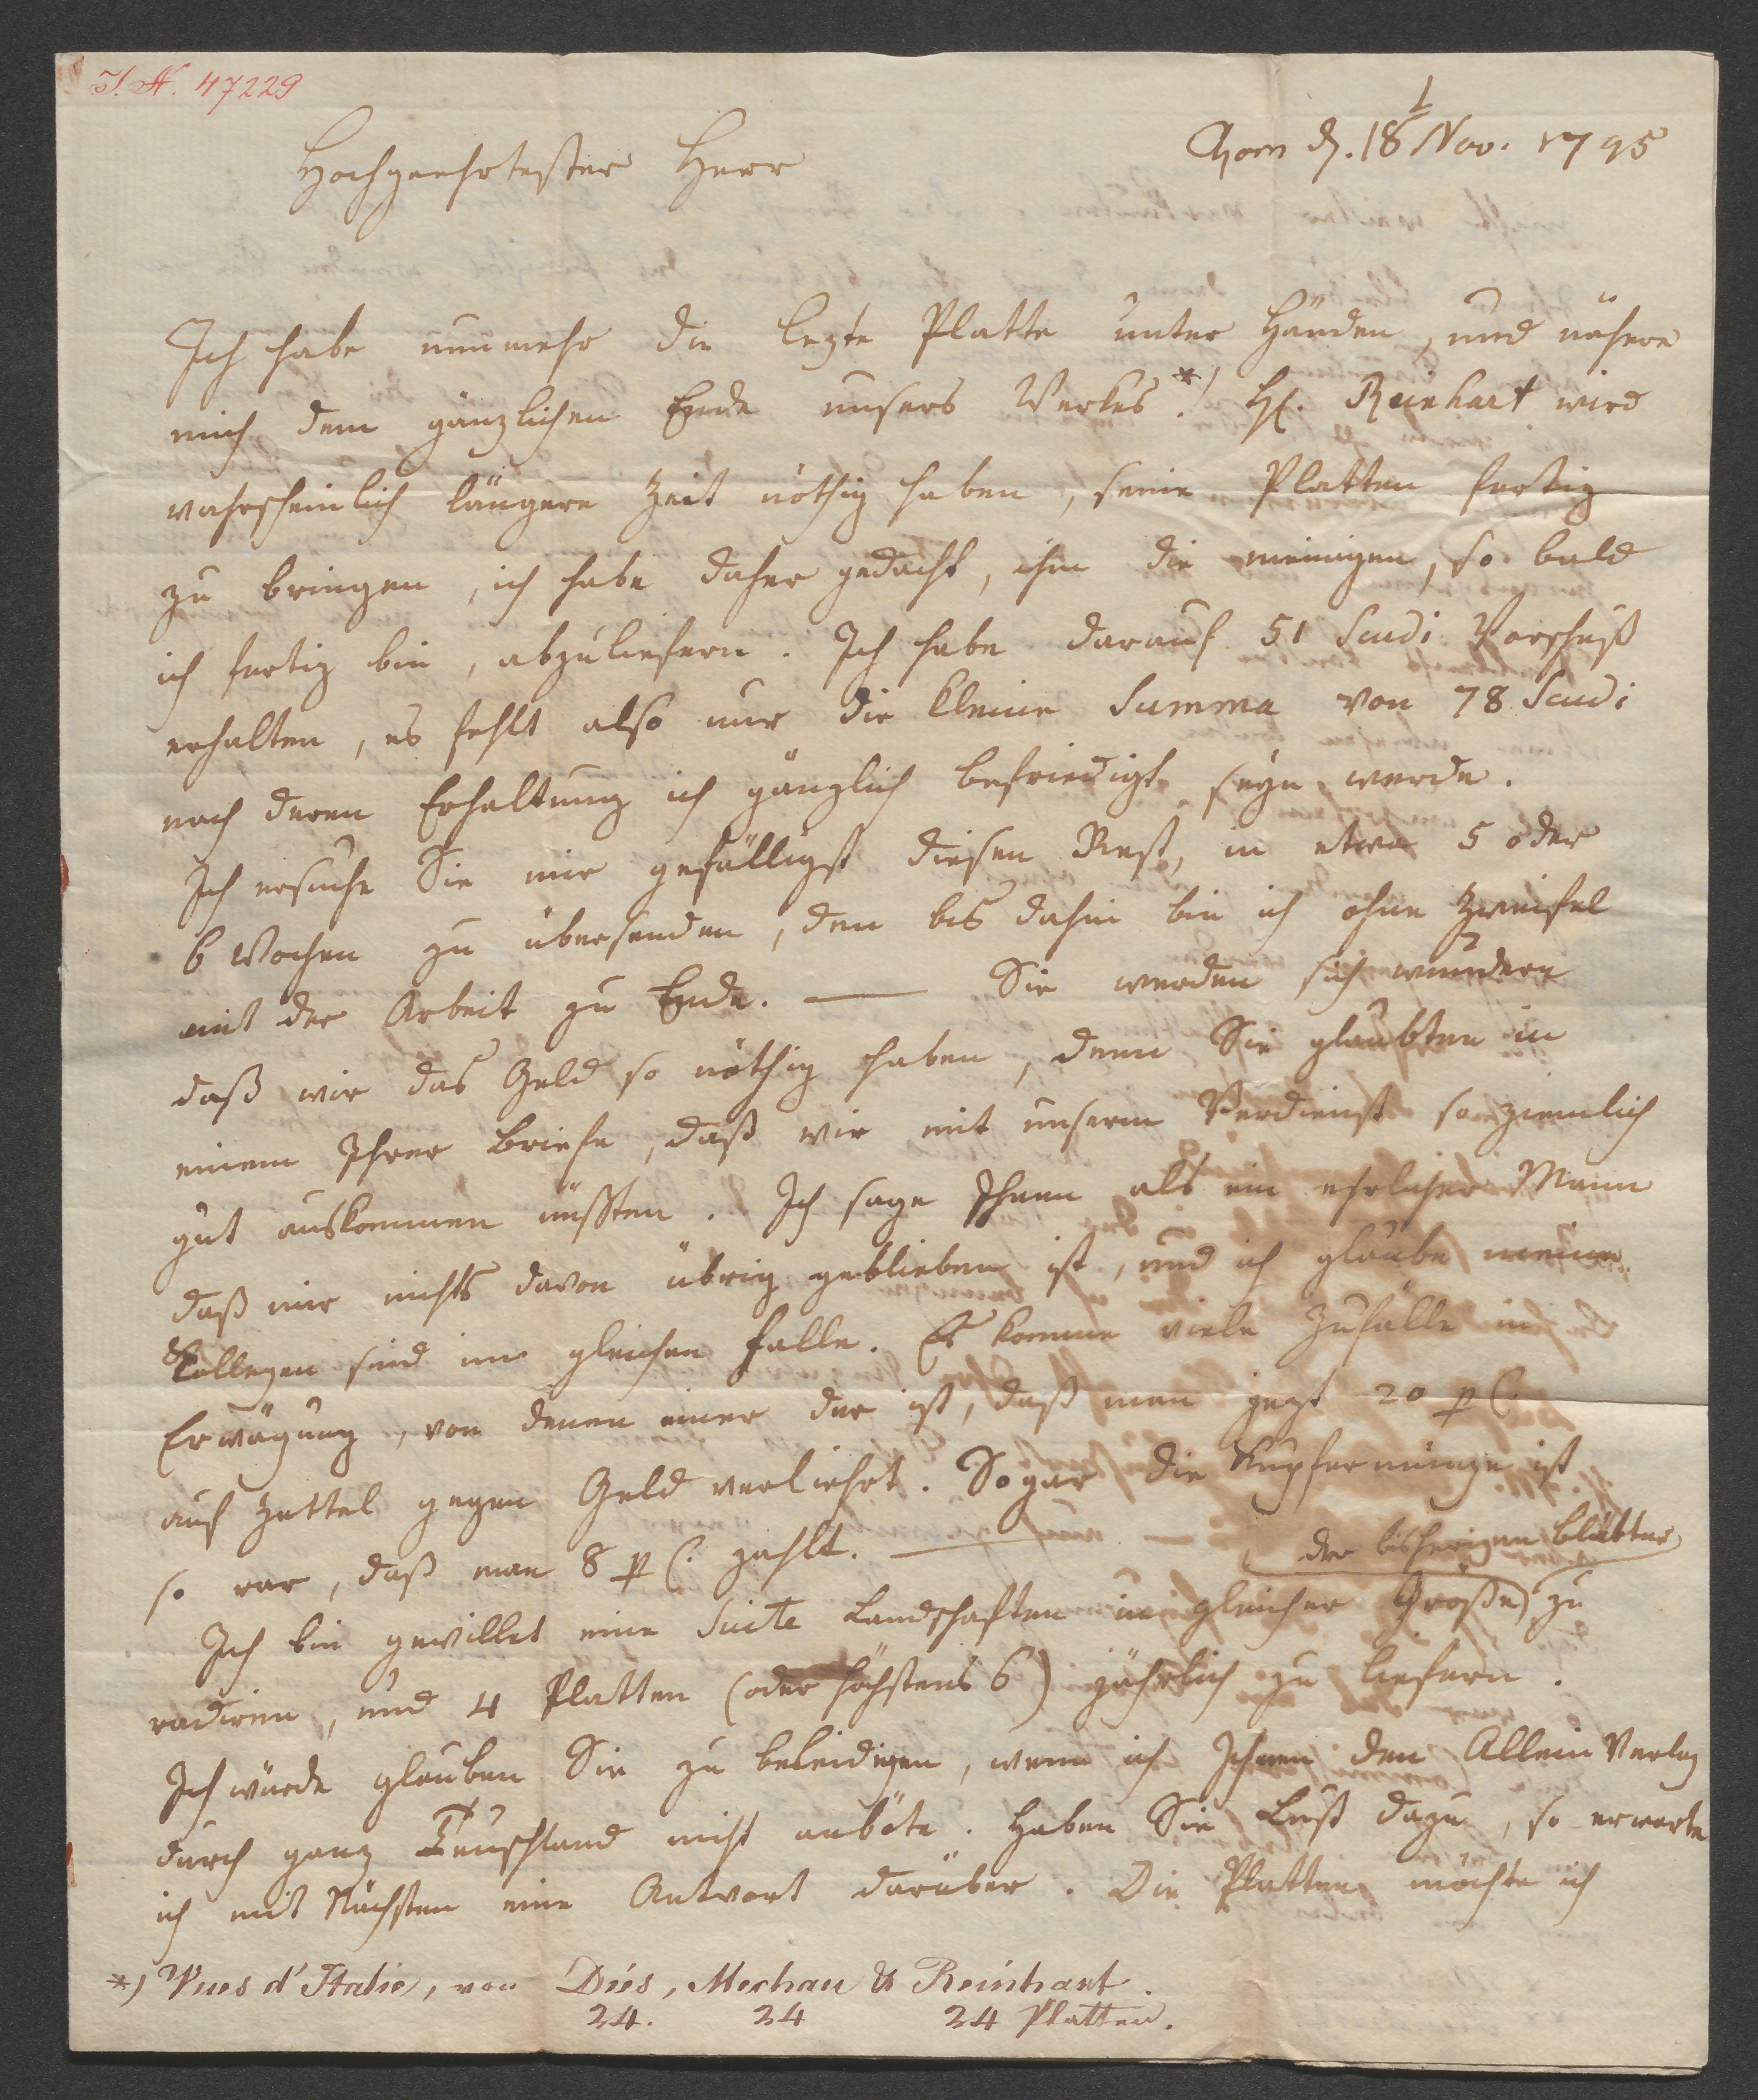 I. N. 47229
Rom d. 18t Nov. 1795
Hochgeehrtester Herr
Ich habe nunmehr die lezte Platte unter Händen, und nähere
mich dem gänzlichen Ende unsers Werkes *). H. Reinhart wird
wahrscheinlich längere Zeit nöthig haben, seine Platten fertig
zu bringen, ich habe daher gedacht, ihm die meinigen, so bald
ich fertig bin, abzuliefern. Ich habe darauf 51 Scudi Vorschuß
erhalten, es fehlt also nur die kleine Summa von 78 Scudi
nach deren Erhaltung ich gänzlich befriedigt seyn werde.
Ich ersuche Sie mir gefälligst diesen Rest, in etwa 5 oder
6 Wochen zu übersenden, den bis dahin bin ich ohne Zweifel
mit der Arbeit zu Ende. — Sie werden sich wundern
daß wir das Geld so nöthig haben, denn Sie glaubten in
einem Ihrer Briefe, daß wir mit unserm Verdienst so ziemlich
gut auskommen müßten. Ich sage Ihnen als ein ehrlicher Mann
daß mir nichts davon übrig geblieben ist, und ich glaube meine
Kollegen sind im gleichen Falle. Es komme viele Zufälle in
Erwägung, von denen einer der ist, daß man jezt 20 p C.
auf Zettel gegen Geld verliehrt. Sogar die Kupfermünze ist
so rar, daß man 8 p C. zahlt. —
der bisherigen Blätter
Ich bin gewillet eine Suite Landschaften in gleicher Größe zu
radiren, und 4 Platten (oder höchstens 6) jährlich zu liefern.
Ich würde glauben Sie zu beleidigen, wenn ich Ihnen den Allein Verlag
durch ganz Teuschland nicht anböte. Haben Sie Lust dazu, so erwarte
ich mit Nächsten eine Antwort darüber. Die Platten möchte ich
*) Vues d'Italie, von Dies, Mechau & Reinhart.
24. 24 24 Platten.